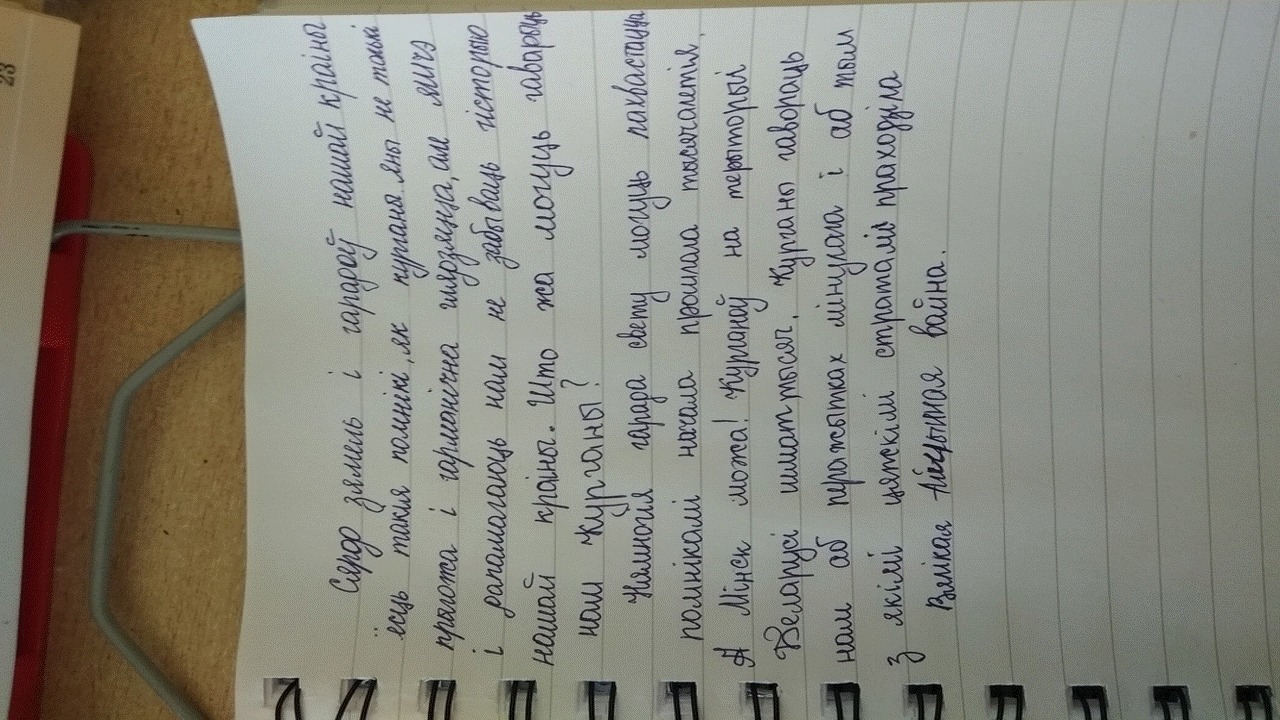 Сярод зямель і гарадоў нашай краіны
ёсць такія помнікі, як курганы. Яны не толькі
прыгожа і гарманічна глядзяцца, але яшчэ
і дапамагаюць нам не забываць гісторыю
нашай краіны. Што жа могуць гаварыць
нам курганы?
Нямногія гарада свету могуць пахвастацца
помнікамі начала прошлага тысячалетія.
А Мінск можа! Курганоў на терыторыі
Беларусі шмат тысяч. Курганы гавораць
нам аб перажытках мінулага і аб тым
з якімі цяжкімі стратамі праходзіла
Вялікая Айчынная вайна.
23